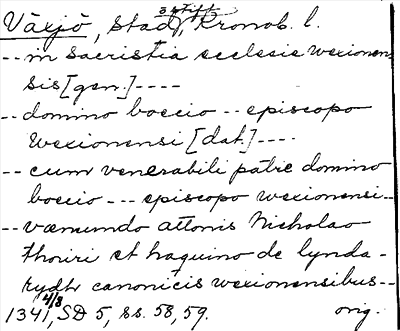 Växjö, Stad, Kronob. l.
-- in sacristia ecclesie wexionen
sis [gen.] ----
-- domino boecio -- episcopo
wexionensi [dat.] ----
-- cum venerabili patre domino
boecio --- episcopo wexionensi --
-- væmundo attonis Nicholao
thoiri et haquino de lynda-
rydh canonicis wexionensibus --
1341 4/8, SD 5, ss. 58, 59. orig.